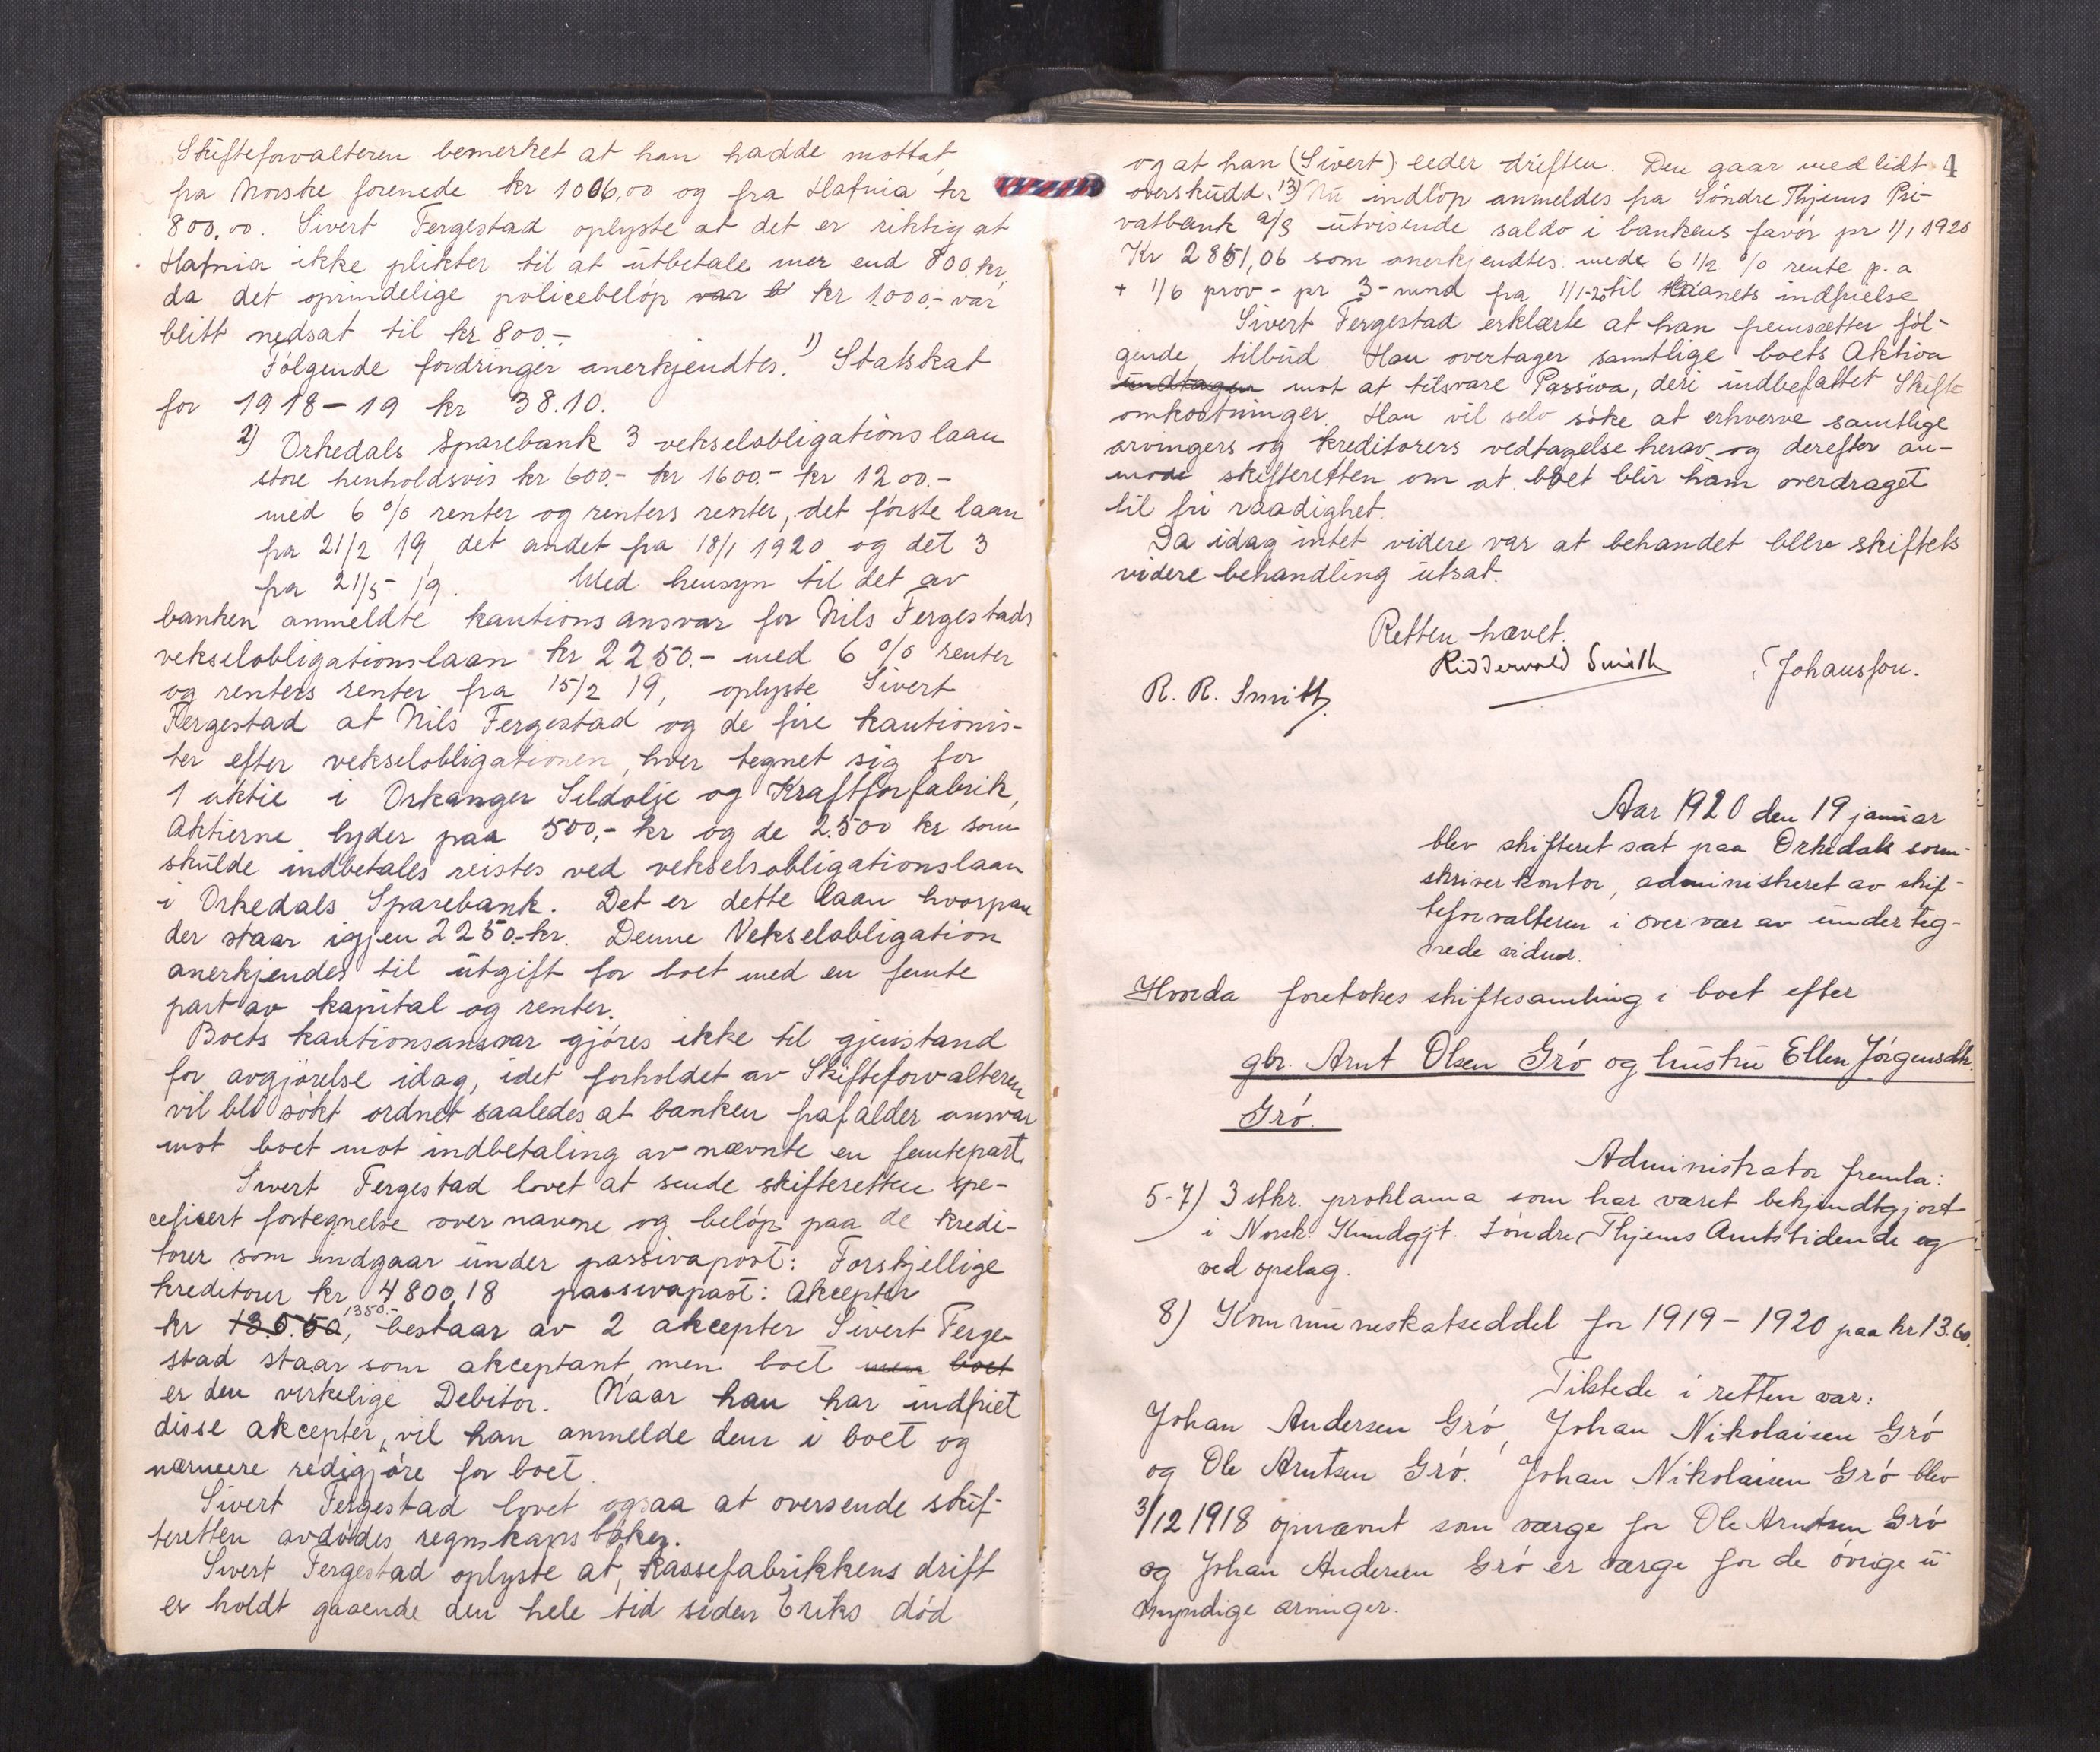 Skifteforvalteren bemerket at han hadde mottat
fra Norske forenede kr 1006,00 og fra Hafnia kr
800,00. Sivert Fergestad oplyste at det er riktig at
Hafnia ikke plikter til at utbetale mer end 800 kr,
da det oprindelige policebeløp var kr 1.000,- var
blitt nedsat til kr 800.-
Følgende fordringer anerkjendtes. 1) Statskat
for 1918-19 kr 38.10.
2) Orkedals Sparebank 3 vekselobligationslaan
store henholdsvis kr 600.- kr 1600.- kr 1200.-
med 6 % renter og renters renter, det første laan
fra 21/2 19 det andet fra 18/1 1920 og det 3
fra 21/5 19. Med hensyn til det av
banken anmeldte kautionsansvar for Nils Fergestads
vekselobligationslaan kr 2250.- med 6 % renter
og renters renter fra 15/2 19, oplyste Sivert
Fergestad at Nils Fergestad og de fire kautionis-
ter efter vekselobligationen, hver tegnet sig for
1 aktie i Orkanger Sildolje og Kraftforfabrik,
Aktierne lyder paa 500,- kr og de 2.500 kr som
skulde indbetales reistes ved vekselsobligationslaan
i Orkedals Sparebank. Det er dette laan hvorpaa
der staar igjen 2250.- kr. Denne Vekselobligation
anerkjendes til utgift for boet med en femte
part av kapital og renter.
Boets kautionsansvar gjøres ikke til gjenstand
for avgjørelse idag, idet forholdet av Skifteforvalteren
vil bli søkt ordnet saaledes at banken frafalder ansvar
mot boet mot indbetaling av nævnte en femtepart.
Sivert Fergestad lovet at sende skifteretten spe-
cefisert fortegnelse over navne og beløp paa de kredi-
torer som indgaar under passivapost: Forskjellige
kreditorer kr 4800,18 passivapost: Akcepter
kr 13.5.50, 1350.- bestaar av 2 akcepter Sivert Ferge-
stad staar som akceptant, men boet men boet
er den virkelige Debitor. Naar han har indfriet
disse akcepter, vil han anmelde dem i boet og
nærmere redigjøre for boet.
Sivert Fergestad lovet ogsaa at oversende skif-
teretten avdødes regnskapsbøker.
Sivert Fergestad oplyste at, kassefabrikkens drift
er holdt gaaende den hele tid siden Eriks død
4
og at han (Sivert) leder driften. Den gaar med lidt
overskudd. 13) Nu indløp anmeldes fra Søndre Thjems Pri-
vatbank a/s utvisende saldo i bankens favør pr 1/1 1920
Kr 2851,06 som anerkjendtes med 6 1/2 % rente p.a
+ 1/6 prov- pr 3-mnd fra 1/1-20 til laanets indfrielse
Sivert Fergestad erklærte at han fremsætter føl-
gende tilbud. Han overtager samtlige boets Aktiva
undtagen mot at tilsvare Passiva, deri indbefattet Skifte
omkostninger. Han vil selv søke at erhverve samtlige
arvingers og kreditorers vedtagelse herav og derefter an-
mode skifteretten om at boet blir ham overdraget
til fri raadighet.
Da idag intet videre var at behandet blev skiftets
videre behandling utsat.
Retten hævet.
Ridderwold Smith
Johansson.
R. R. Smith
Aar 1920 den 19 januar
blev skifteret sat paa Orkedals soren-
skriverkontor, administreret av skif-
teforvalteren i overvær av underteg-
nede vidner.
Hvorda foretokes skiftesamling i boet efter
gbr. Arnt Olsen Grø og hustru Ellen Jørgensdtr.
Grø.
Administrator fremla:
5-7) 3 stkr. proklama som har været bekjendtgjort
i Norsk Kundgjt. Søndre Thjems Amtstidende og
ved opslag.
8) Kommuneskatseddel for 1919-1920 paa kr 13.60.
Tilstede i retten var:
Johan Andersen Grø, Johan Nikolaisen Grø
og Ole Arntsen Grø. Johan Nikolaisen Grø blev
3/12 1918 opnævnt som værge for Ole Arntsen Grø
og Johan Andersen Grø er værge for de øvrige u-
myndige arvinger.